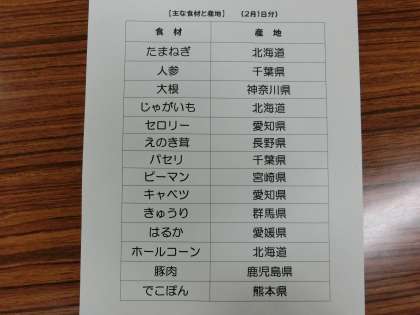 [主な食材と産地] (2月1日分)
食 材 産 地
たまねぎ 北海道
人参 千葉県
大根 神奈川県
じゃがいも 北海道
セロリー 愛知県
えのき茸 長野県
パセリ 千葉県
ピーマン 宮崎県
キャベツ 愛知県
きゅうり 群馬県
はるか 愛媛県
ホールコーン 北海道
豚肉 鹿児島県
でこぽん 熊本県